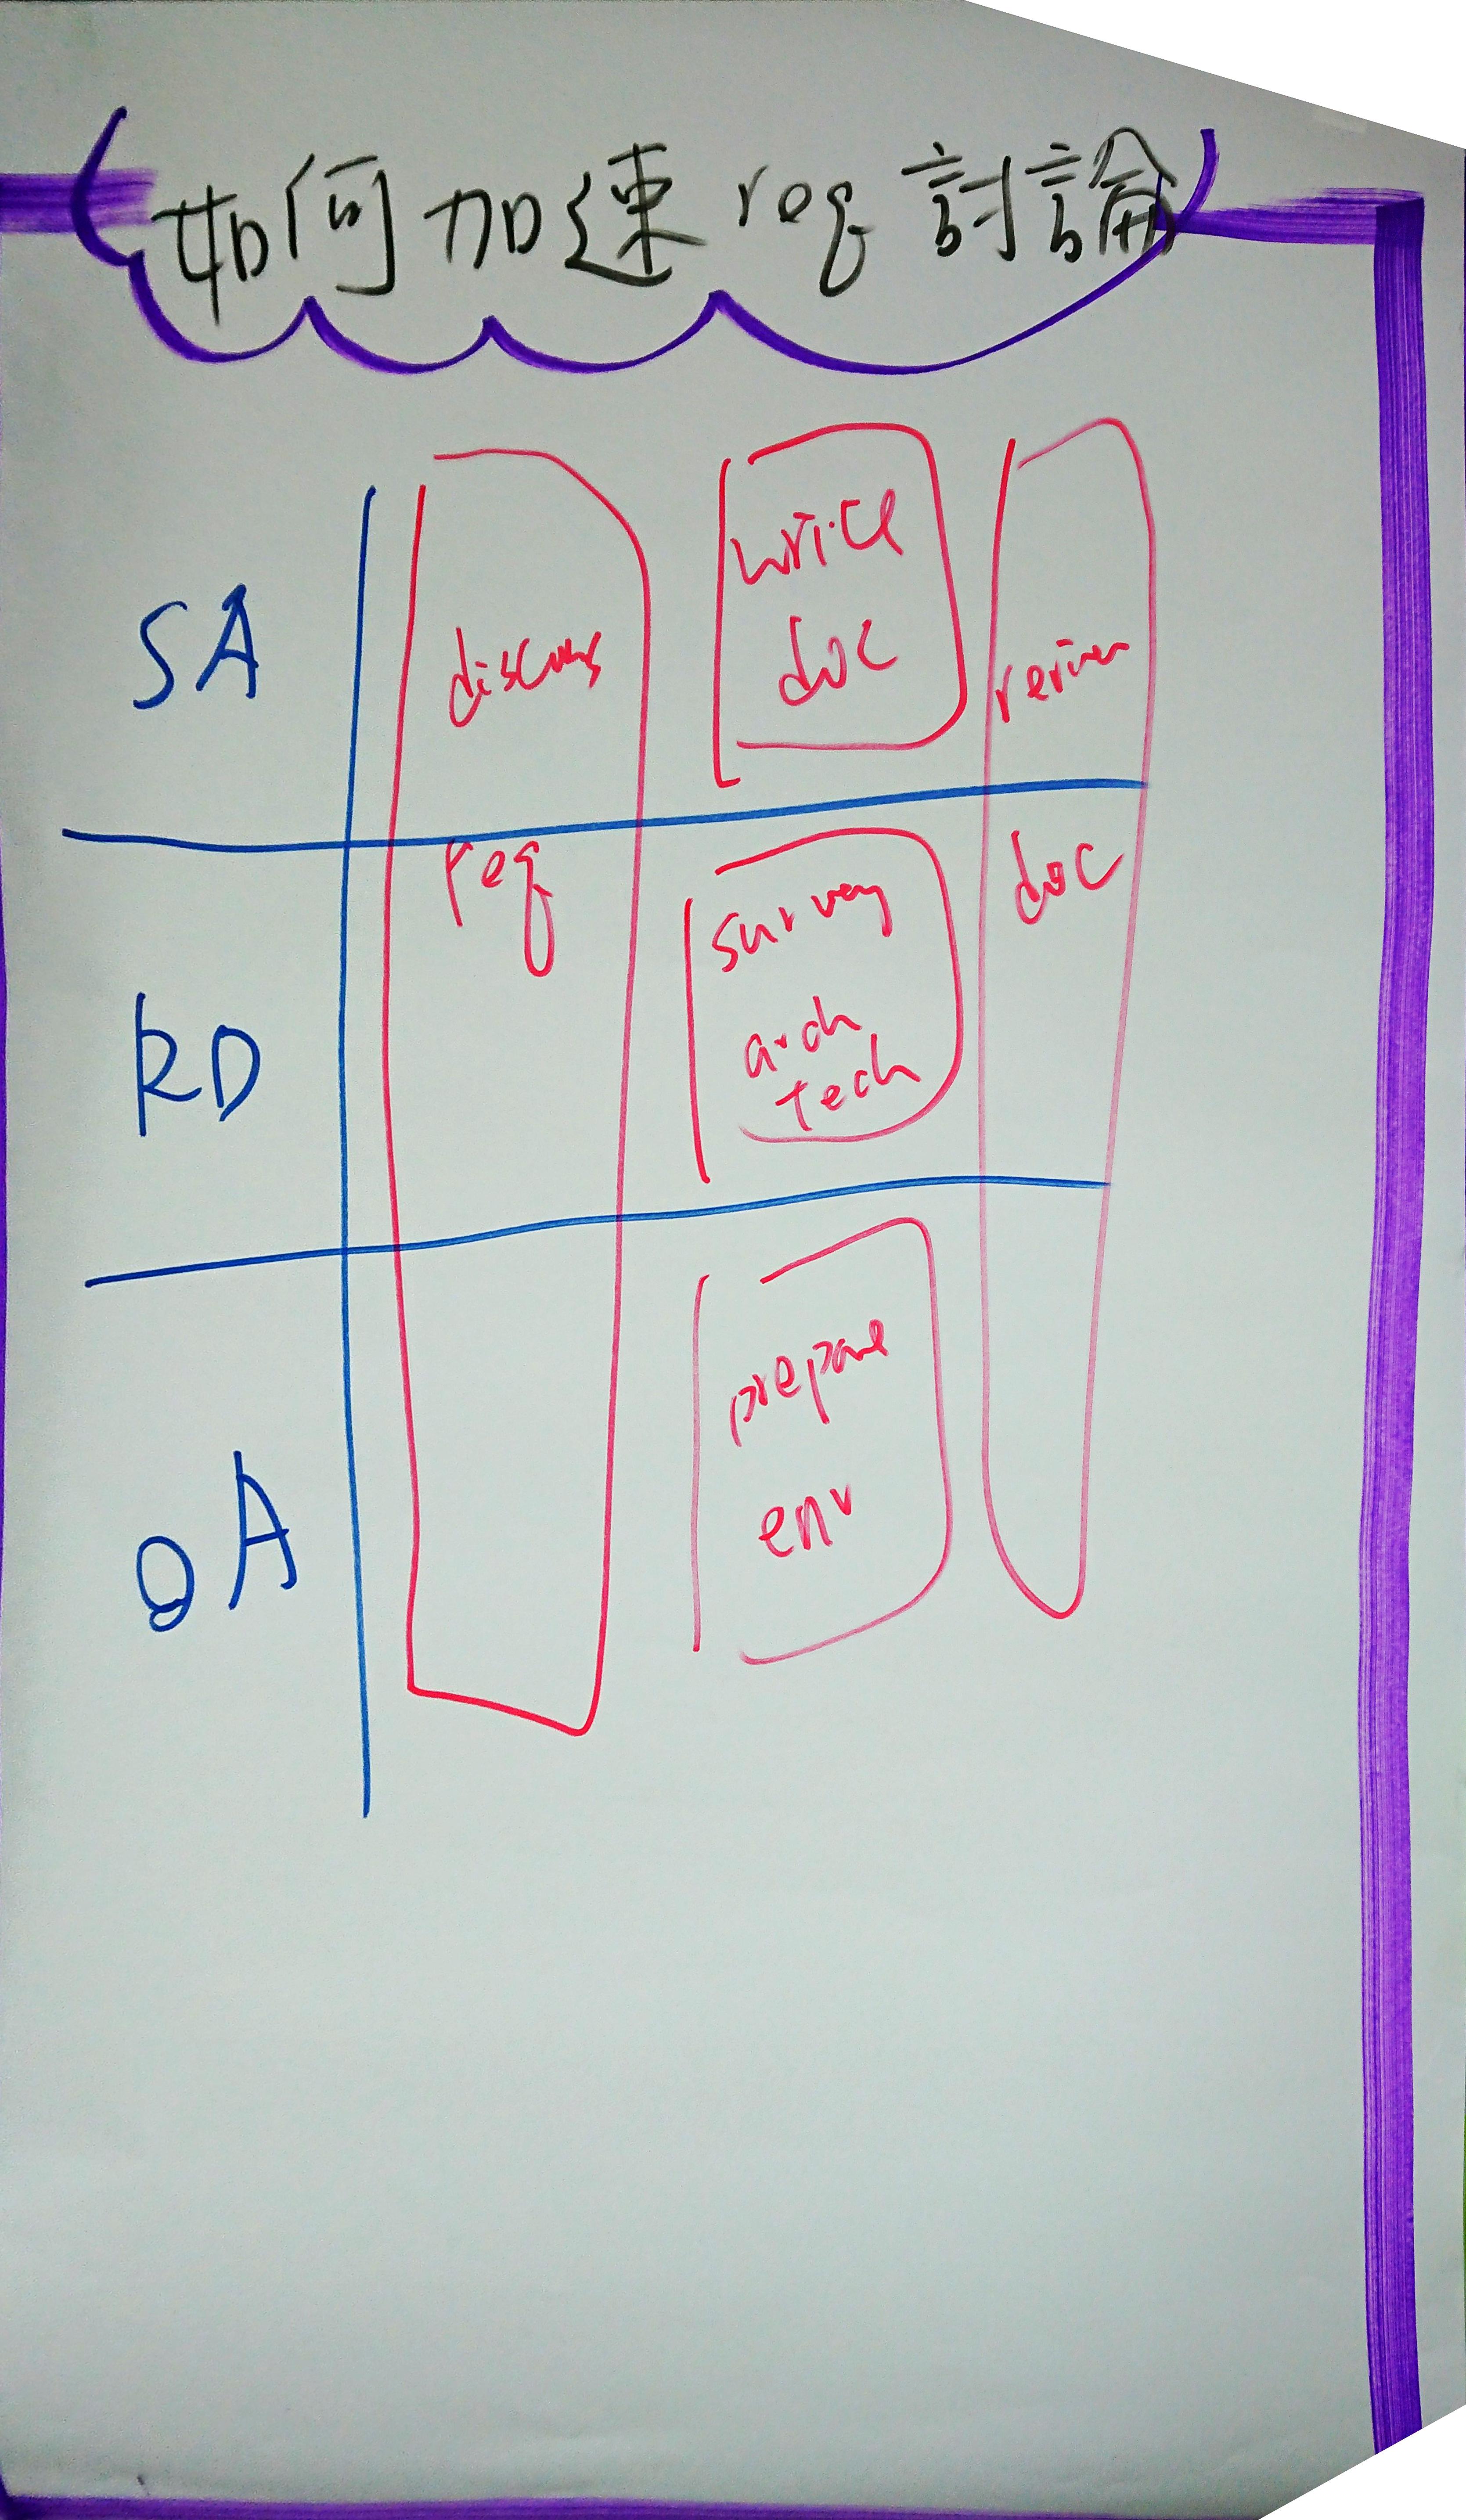 如何加速req討論
SA
discuss
req
write
doc
review
doc
RD
survey
arch
tech
QA
prepare
env